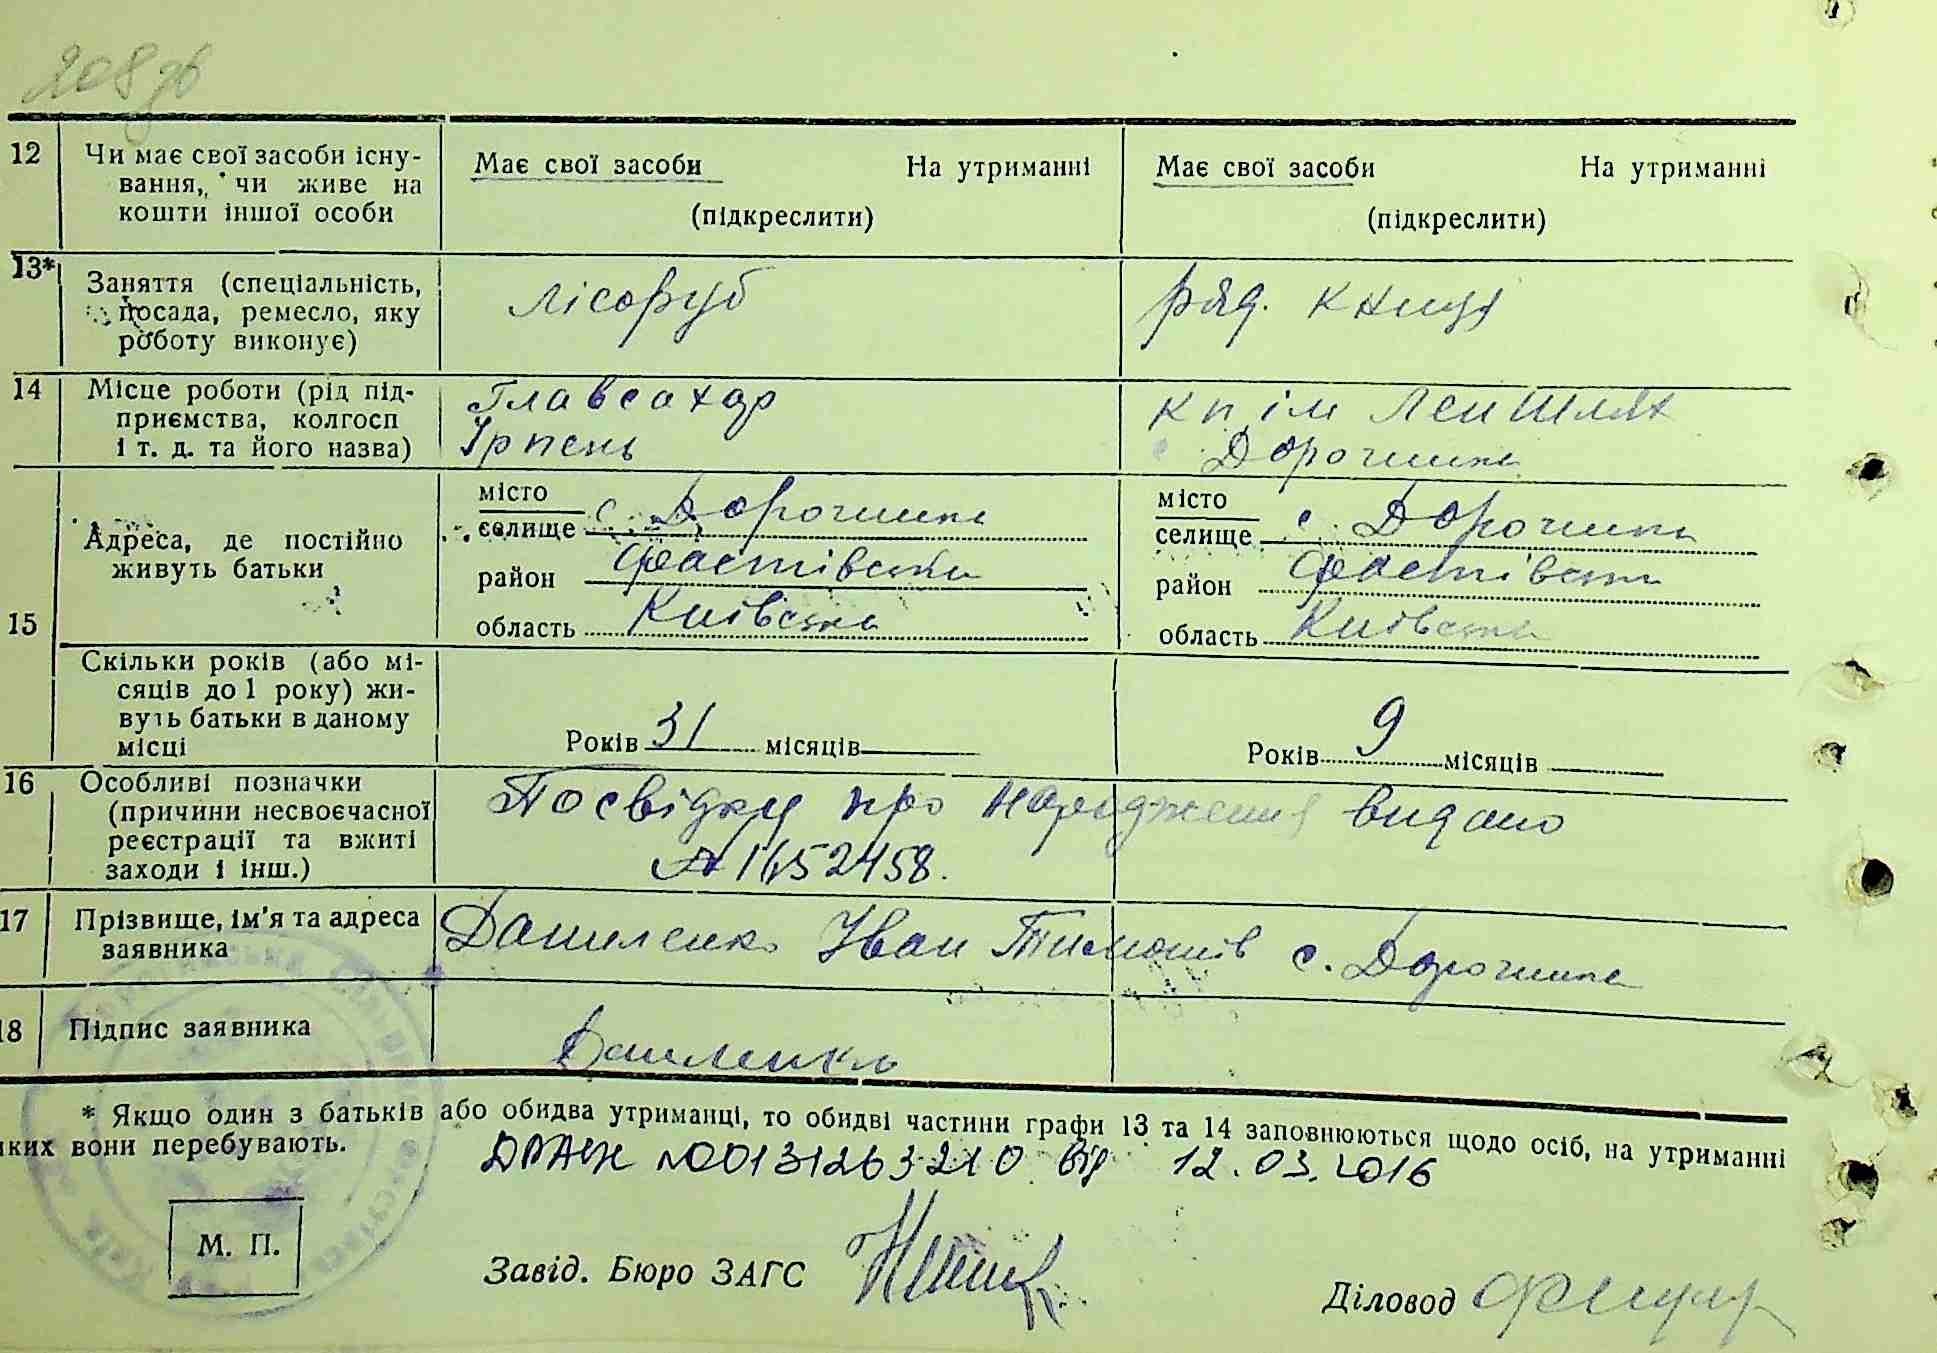 208зв
12 Чи має свої засоби існу- Має свої засоби На утриманні Має свої засоби На утриманні
вання, чи живе на
кошти іншої особи (підкреслити) (підкреслити)
13* Заняття (спеціальність, лісоруб ряд.
посада, ремесло, яку
роботу виконує)
14 Місце роботи (рід під- Главсахар кп ім Лен Шлях
приємства, колгосп Ірпень с Дорогинка
і т. д. та його назва)
15 Адреса, де постійно місто місто
живуть батьки селище с. Дорогинка селище с. Дорогинка
район Фастівськи район Фастівськи
область Київська область Київська
Скільки років (або мі-
сяців до 1 року) жи-
вуть батьки в даному
місці Років 31 місяців Років 9 місяців
16 Особливі позначки Посвідку про народження видано
(причини несвоєчасної
реєстрації та вжиті № 1652458.
заходи і інш.)
17 Прізвище, ім'я та адреса Даниленко Іван Тимошів с. Дорогинка
заявника
18 Підпис заявника Даниленко
* Якщо один з батьків або обидва утриманці, то обидві частини графи 13 та 14 заповнюються щодо осіб, на утриманні
яких вони перебувають.
ДРАЦС №00131263210 від 12.03.2016
М. П.
Завід. Бюро ЗАГС
Діловод